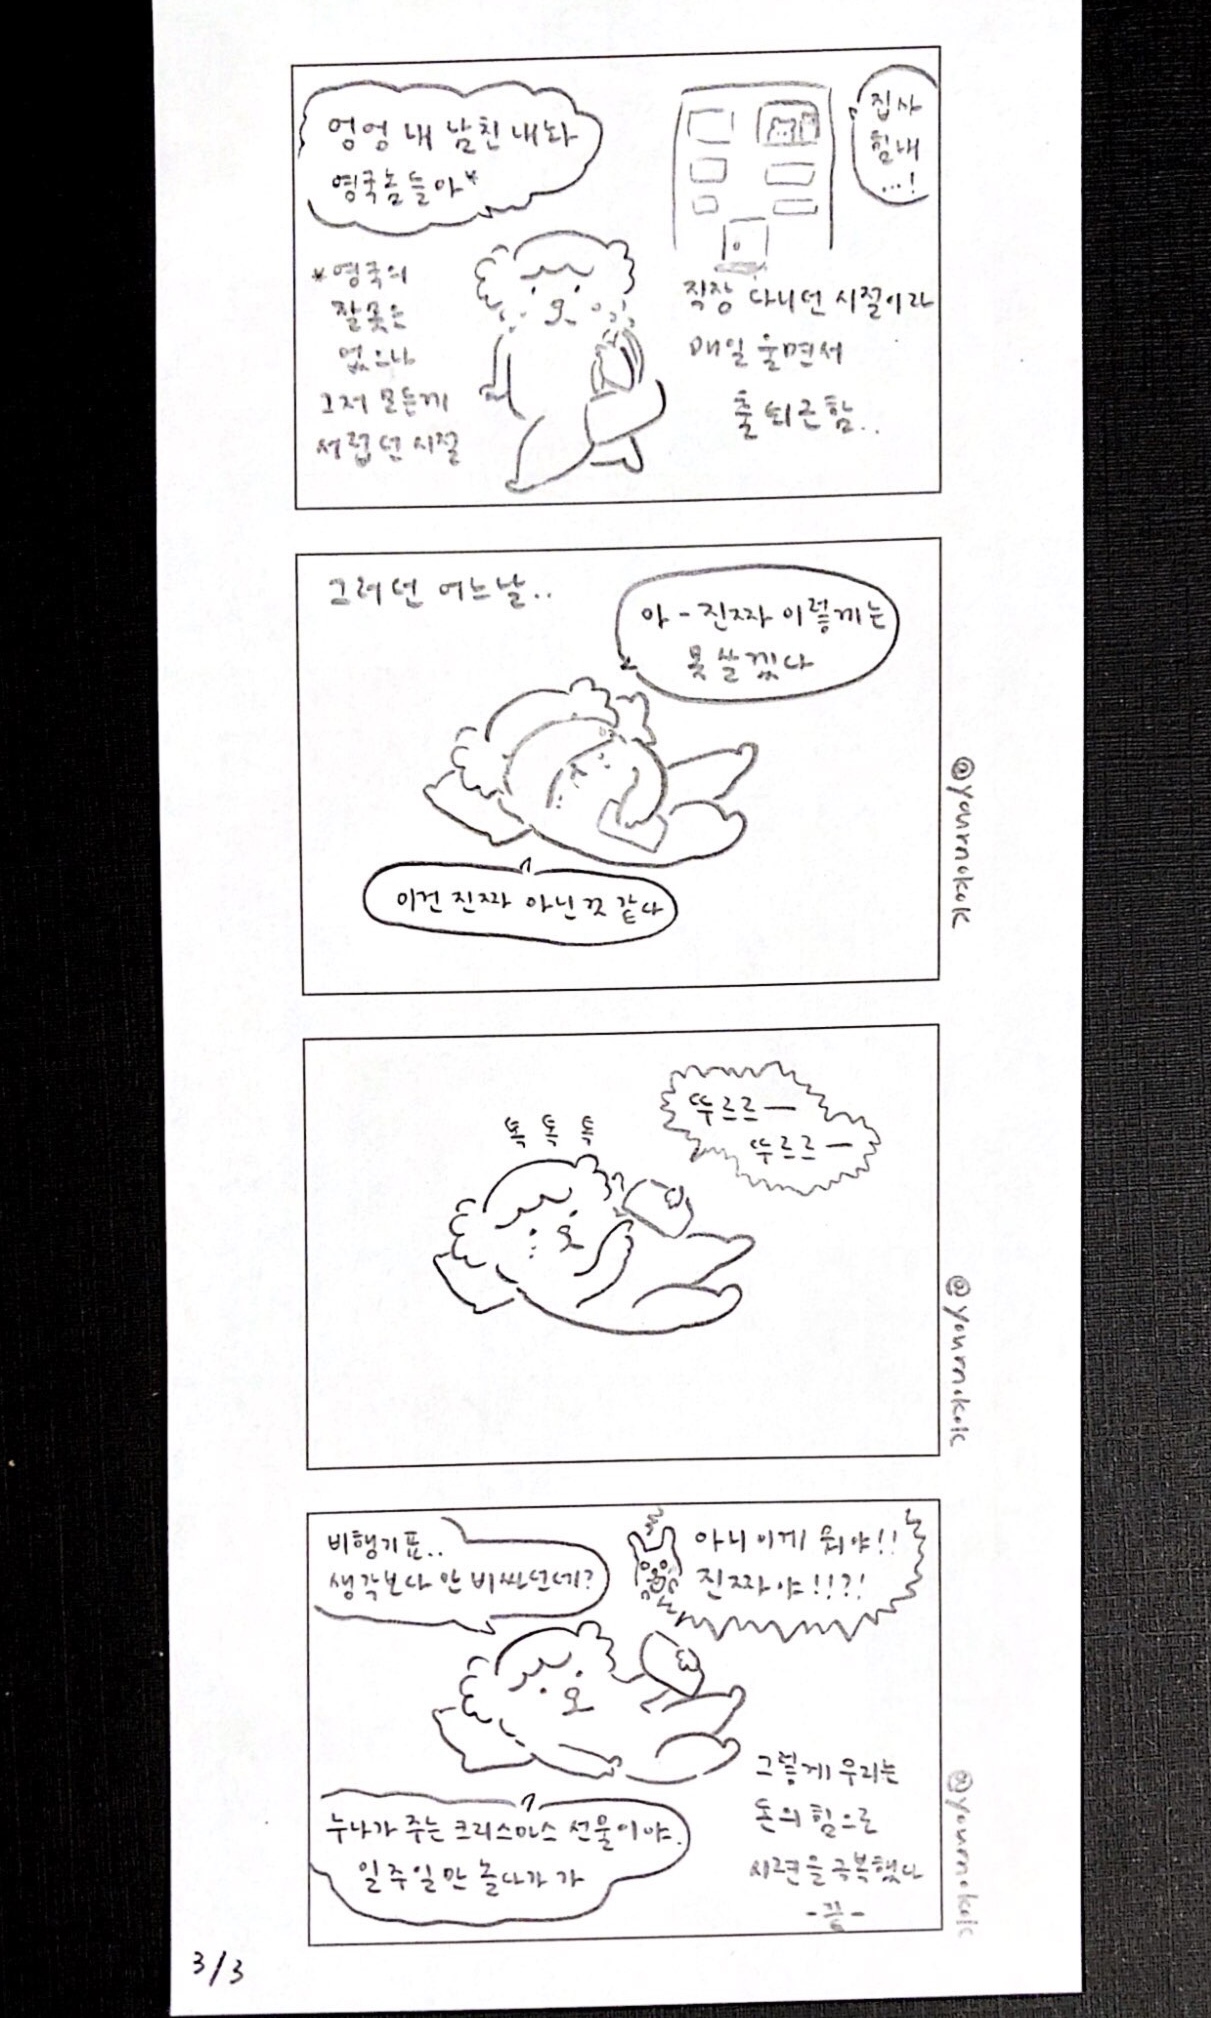 엉엉 내 남친 내놔
영국놈들아*
집사
힘내
...!
*영국의
잘못은
없으나
그저 모든게
서럽던 시절
직장 다니던 시절이라
매일 울면서
출퇴근함..
그러던 어느날..
아-진짜 이렇게는
못 살겠다
이건 진짜 아닌 것 같다
@yournokok
톡 톡 톡
뚜르르ー
뚜르르ー
@yournokok
비행기표..
생각보다 안 비싸던데?
아니 이게 뭐야!!
진짜야!!?!
누나가 주는 크리스마스 선물이야.
일주일만 놀다가 가
그렇게 우리는
돈의 힘으로
시련을 극복했다
-끝-
@yournokok
3/3